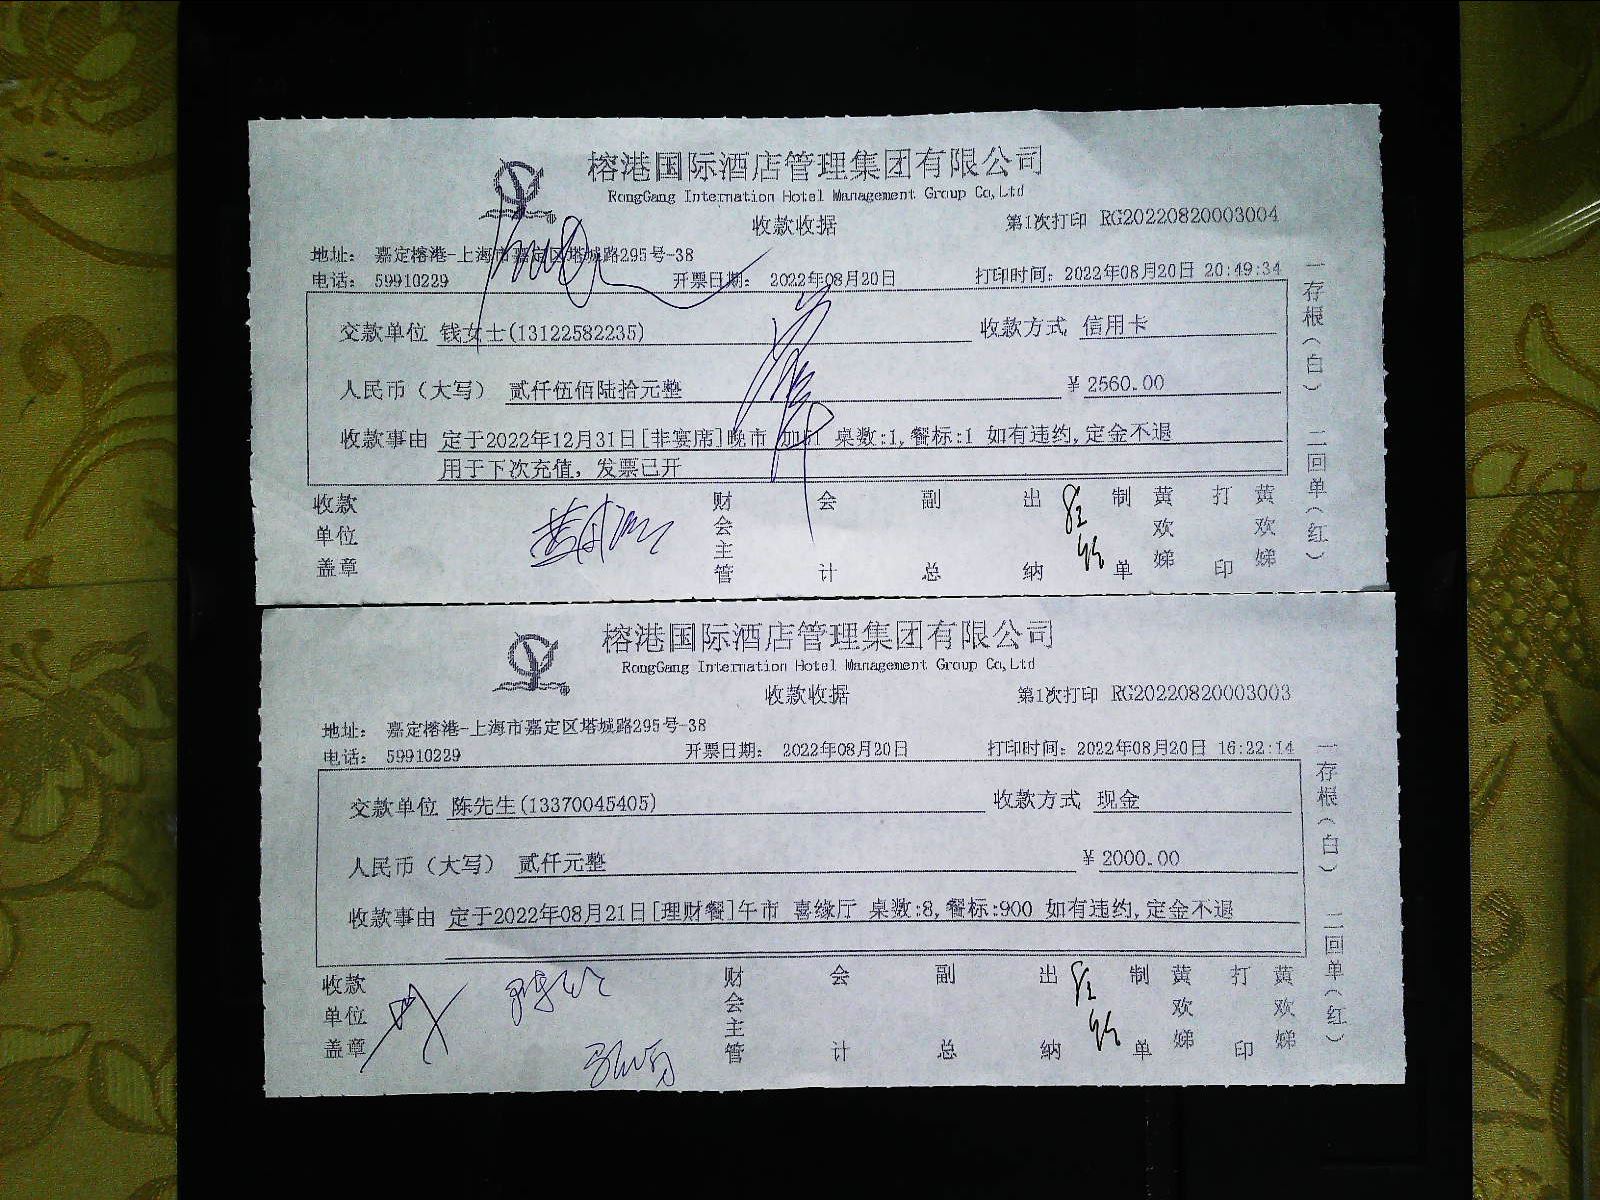 榕港国际酒店管理集团有限公司
RongGang Internation Hotel Management Group Co,Ltd
收款收据 第1次打印 RG20220820003004
地址： 嘉定榕港-上海市嘉定区塔城路295号-38
电话： 59910229 开票日期： 2022年08月20日 打印时间：2022年08月20日 20:49:34
交款单位 钱女士(13122582235) 收款方式 信用卡
人民币（大写） 贰仟伍佰陆拾元整 ¥ 2560.00
收款事由 定于2022年12月31日[非宴席]晚市 桌数:1,餐标:1 如有违约,定金不退
用于下次充值，发票已开
收款单位盖章 财会主管 会计 副总 出纳 制单 黄欢娣 打印 黄欢娣
一存根（白） 二回单（红）
榕港国际酒店管理集团有限公司
RongGang Internation Hotel Management Group Co,Ltd
收款收据 第1次打印 RG20220820003003
地址： 嘉定榕港-上海市嘉定区塔城路295号-38
电话： 59910229 开票日期： 2022年08月20日 打印时间：2022年08月20日 16:22:14
交款单位 陈先生(13370045405) 收款方式 现金
人民币（大写） 贰仟元整 ¥ 2000.00
收款事由 定于2022年08月21日[理财餐]午市 喜缘厅 桌数:8,餐标:900 如有违约,定金不退
收款单位盖章 财会主管 会计 副总 出纳 制单 黄欢娣 打印 黄欢娣
一存根（白） 二回单（红）